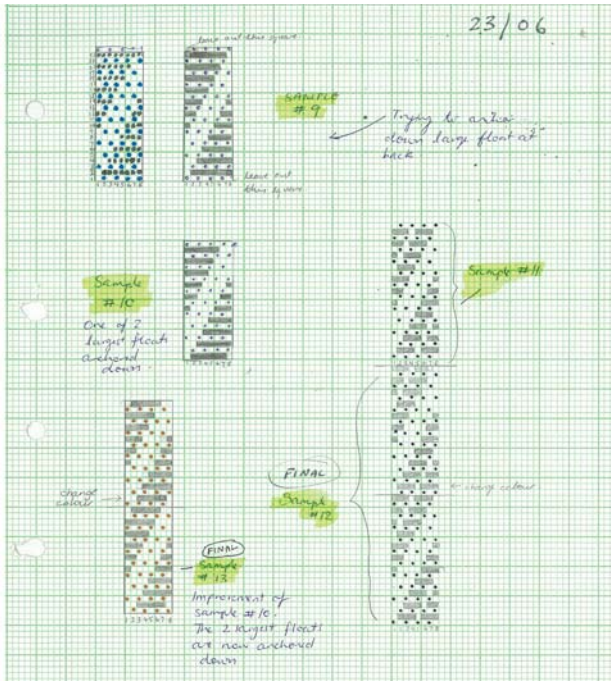 23/06
leave out this square
SAMPLE
#9
Trying to anchor
down large float at
back
leave out
this square
12345678
12345678
Sample
#10
One of 2
largest floats
anchord
down.
12345678
Sample #11
change
colour
FINAL
Sample
#12
change colour
FINAL
Sample
#13
Improvement of
sample #10.
The 2 largest floats
are now anchored
down
12345678